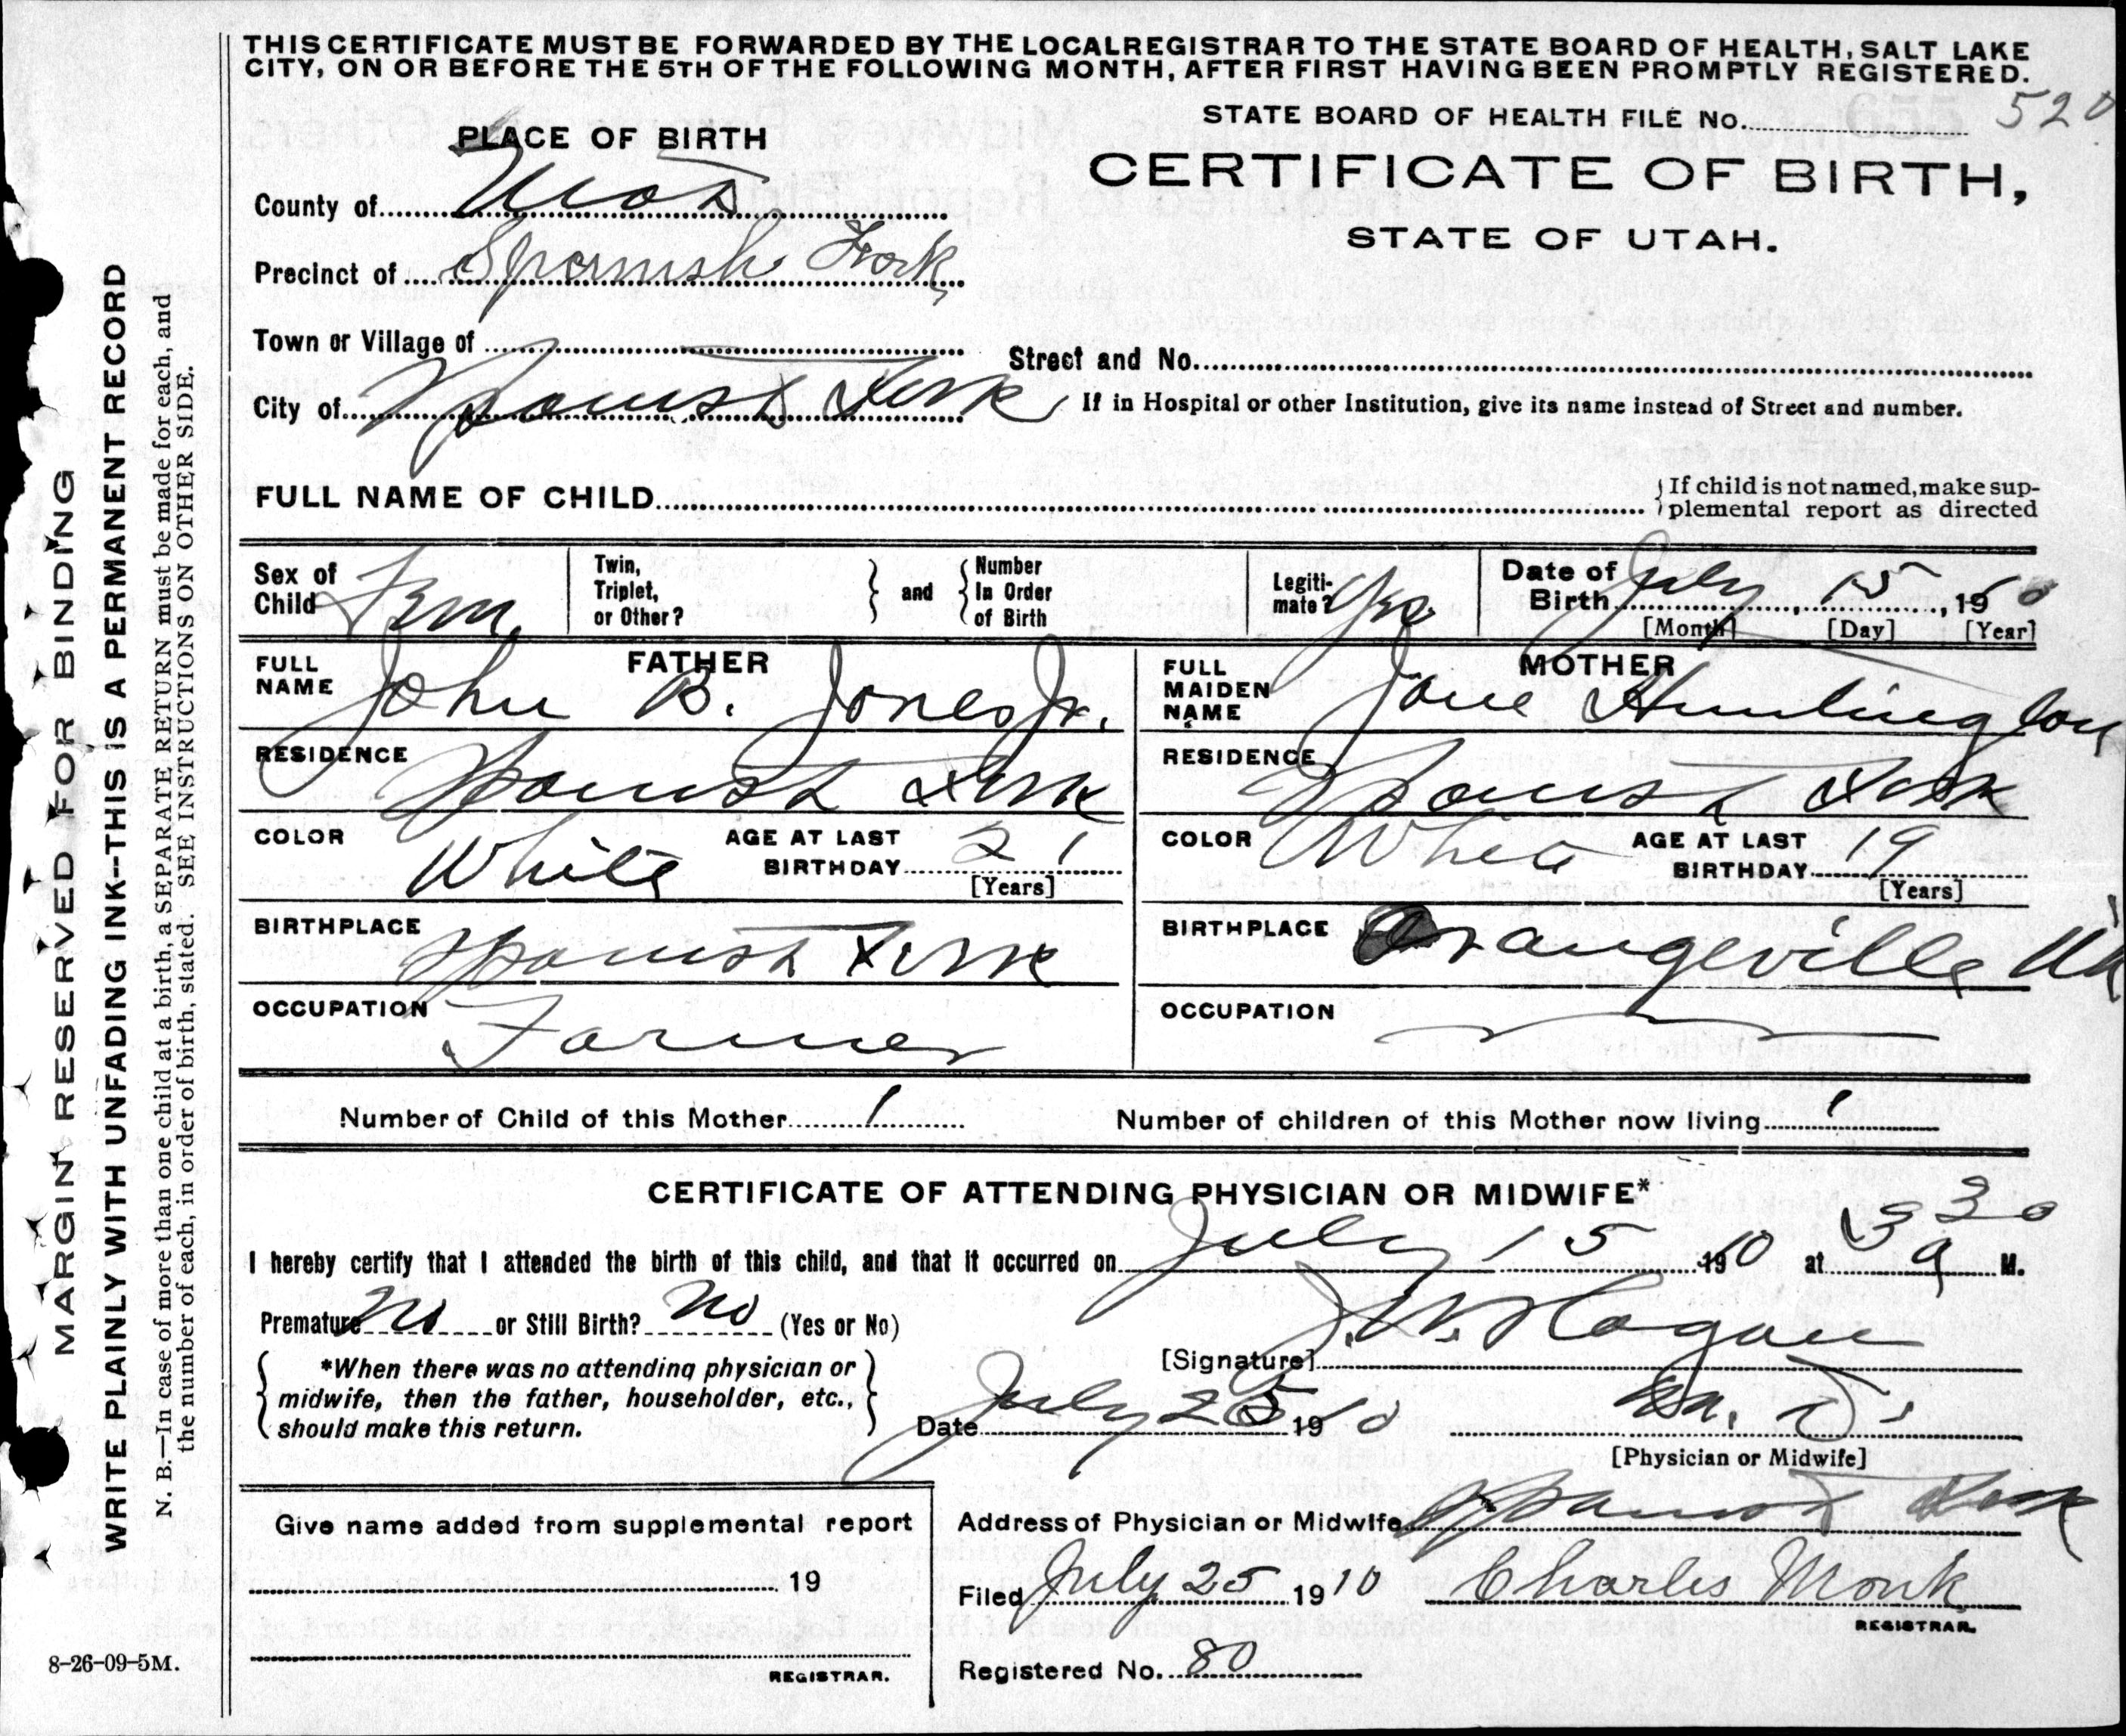 THIS CERTIFICATE MUST BE FORWARDED BY THE LOCAL REGISTRAR TO THE STATE BOARD OF HEALTH, SALT LAKE
CITY, ON OR BEFORE THE 5TH OF THE FOLLOWING MONTH, AFTER FIRST HAVING BEEN PROMPTLY REGISTERED.
STATE BOARD OF HEALTH FILE No. 520
PLACE OF BIRTH
CERTIFICATE OF BIRTH,
STATE OF UTAH.
County of Utah
Precinct of Spanish Fork
Town or Village of
Street and No.
City of Spanish Fork
If in Hospital or other Institution, give its name instead of Street and number.
FULL NAME OF CHILD
If child is not named, make sup-
plemental report as directed
Sex of
Child Fem.
Twin,
Triplet,
or Other?
and
Number
In Order
of Birth
Legiti-
mate? Yes
Date of
Birth July 15, 1910
[Month] [Day] [Year]
FATHER
FULL
NAME John B. Jones Jr.
RESIDENCE Spanish Fork
COLOR White
AGE AT LAST
BIRTHDAY 21
[Years]
BIRTHPLACE Spanish Fork
OCCUPATION Farmer
MOTHER
FULL
MAIDEN
NAME Jane Huntington
RESIDENCE Spanish Fork
COLOR White
AGE AT LAST
BIRTHDAY 19
[Years]
BIRTHPLACE Orangeville Ut
OCCUPATION
Number of Child of this Mother 1
Number of children of this Mother now living 1
CERTIFICATE OF ATTENDING PHYSICIAN OR MIDWIFE*
I hereby certify that I attended the birth of this child, and that it occurred on July 15 1910 at 3 30 a M.
Premature No or Still Birth? No (Yes or No)
*When there was no attending physician or
midwife, then the father, householder, etc.,
should make this return.
[Signature] J. W. Hagan
Date July 25 1910 M. D.
[Physician or Midwife]
Give name added from supplemental report
19
REGISTRAR.
Address of Physician or Midwife Spanish Fork
Filed July 25 1910 Charles Monk
REGISTRAR.
Registered No. 80
MARGIN RESERVED FOR BINDING
WRITE PLAINLY WITH UNFADING INK--THIS IS A PERMANENT RECORD
N. B.—In case of more than one child at a birth, a SEPARATE RETURN must be made for each, and
the number of each, in order of birth, stated. SEE INSTRUCTIONS ON OTHER SIDE.
8-26-09-5M.